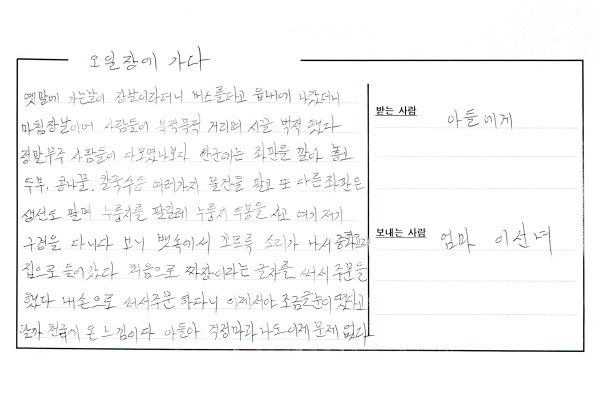 오일장에 가다
옛말에 가는날이 장날이라더니 버스를타고 읍내에 나갔더니
마침장날이여 사람들이 북적북적 거리며 시끌 벅적 했다
정말무주 사람들이 다모였나보다 한군데는 좌판을 깔아 놓고
두부, 콩나물, 칼국수등 여러가지 물건들 팔고 또 다른좌판은
생선도 팔며 누룽지를 팔길레 누룽지 두봉을 사고 여기저기
구경을 다니다 보니 뱃속에서 꼬르륵 소리가 나서 중화요리
집으로 들어갔다 처음으로 짜장이라는 글자를 써서 주문을
했다 내손으로 써서주문 하다니 이제서야 조금글눈이 떴다고
달까 천국에 온 느낌이다 아들아 걱정마라 나도이제 문제 없다
받는 사람
아들에게
보내는 사람
엄마 이선녀